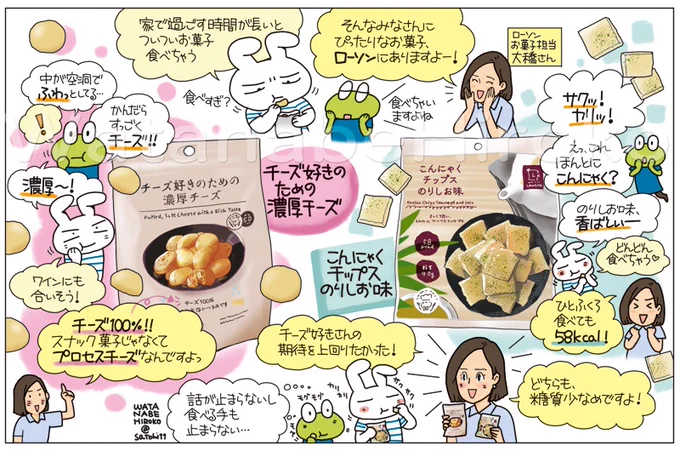 家で過ごす時間が長いと
ついついお菓子
食べちゃう
食べすぎ?
そんなみなさんに
ぴったりなお菓子、
ローソンにありますよー!
食べちゃい
ますよね
ローソン
お菓子担当
大橋さん
中が空洞で
ふわっとしてる…
!
かんだら
すっごく
チーズ!!
濃厚〜!
ワインにも
合いそう!
チーズ100%!!
スナック菓子じゃなくて
プロセスチーズなんですよっ
チーズ好きのための
濃厚チーズ
Puffed, Soft Cheese with a Rich Taste
チーズ100%
チーズ好きの
ための
濃厚チーズ
こんにゃく
チップス
のりしお味
こんにゃく
チップス
のりしお味
58
90
サクッ!
カリッ!
えっ、これ
ほんとに
こんにゃく?
のりしお味、
香ばしいー
どんどん
食べちゃう♡
ひとふくろ
食べても
58kcal!
チーズ好きさんの
期待を上回りたかった!
話が止まらないし
食べる手も
止まらない…
モグモグ
カリカリ
サクサク
どちらも、
糖質少なめですよ!
WATA
NABE
HIROKO
@
satohi11
Watanabe Hiroko